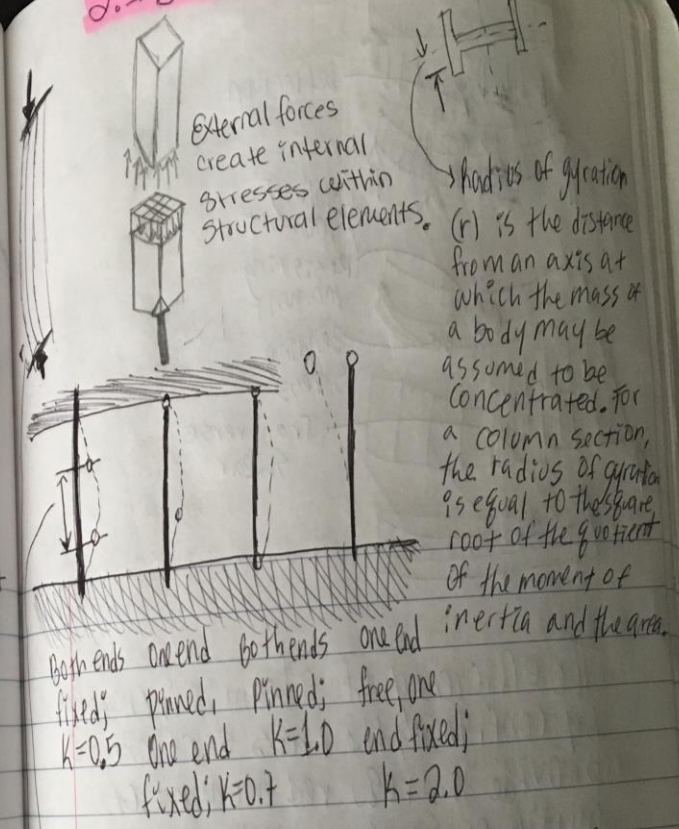 External forces
create internal
stresses within
structural elements.
Radius of gyration
(r) is the distance
from an axis at
which the mass of
a body may be
assumed to be
concentrated. For
a column section,
the radius of gyration
is equal to the square
root of the quotient
of the moment of
inertia and the area.
Both ends
fixed;
K=0.5
one end
pinned,
one end
fixed; K=0.7
Both ends
pinned;
K=1.0
one end
free, one
end fixed;
K=2.0